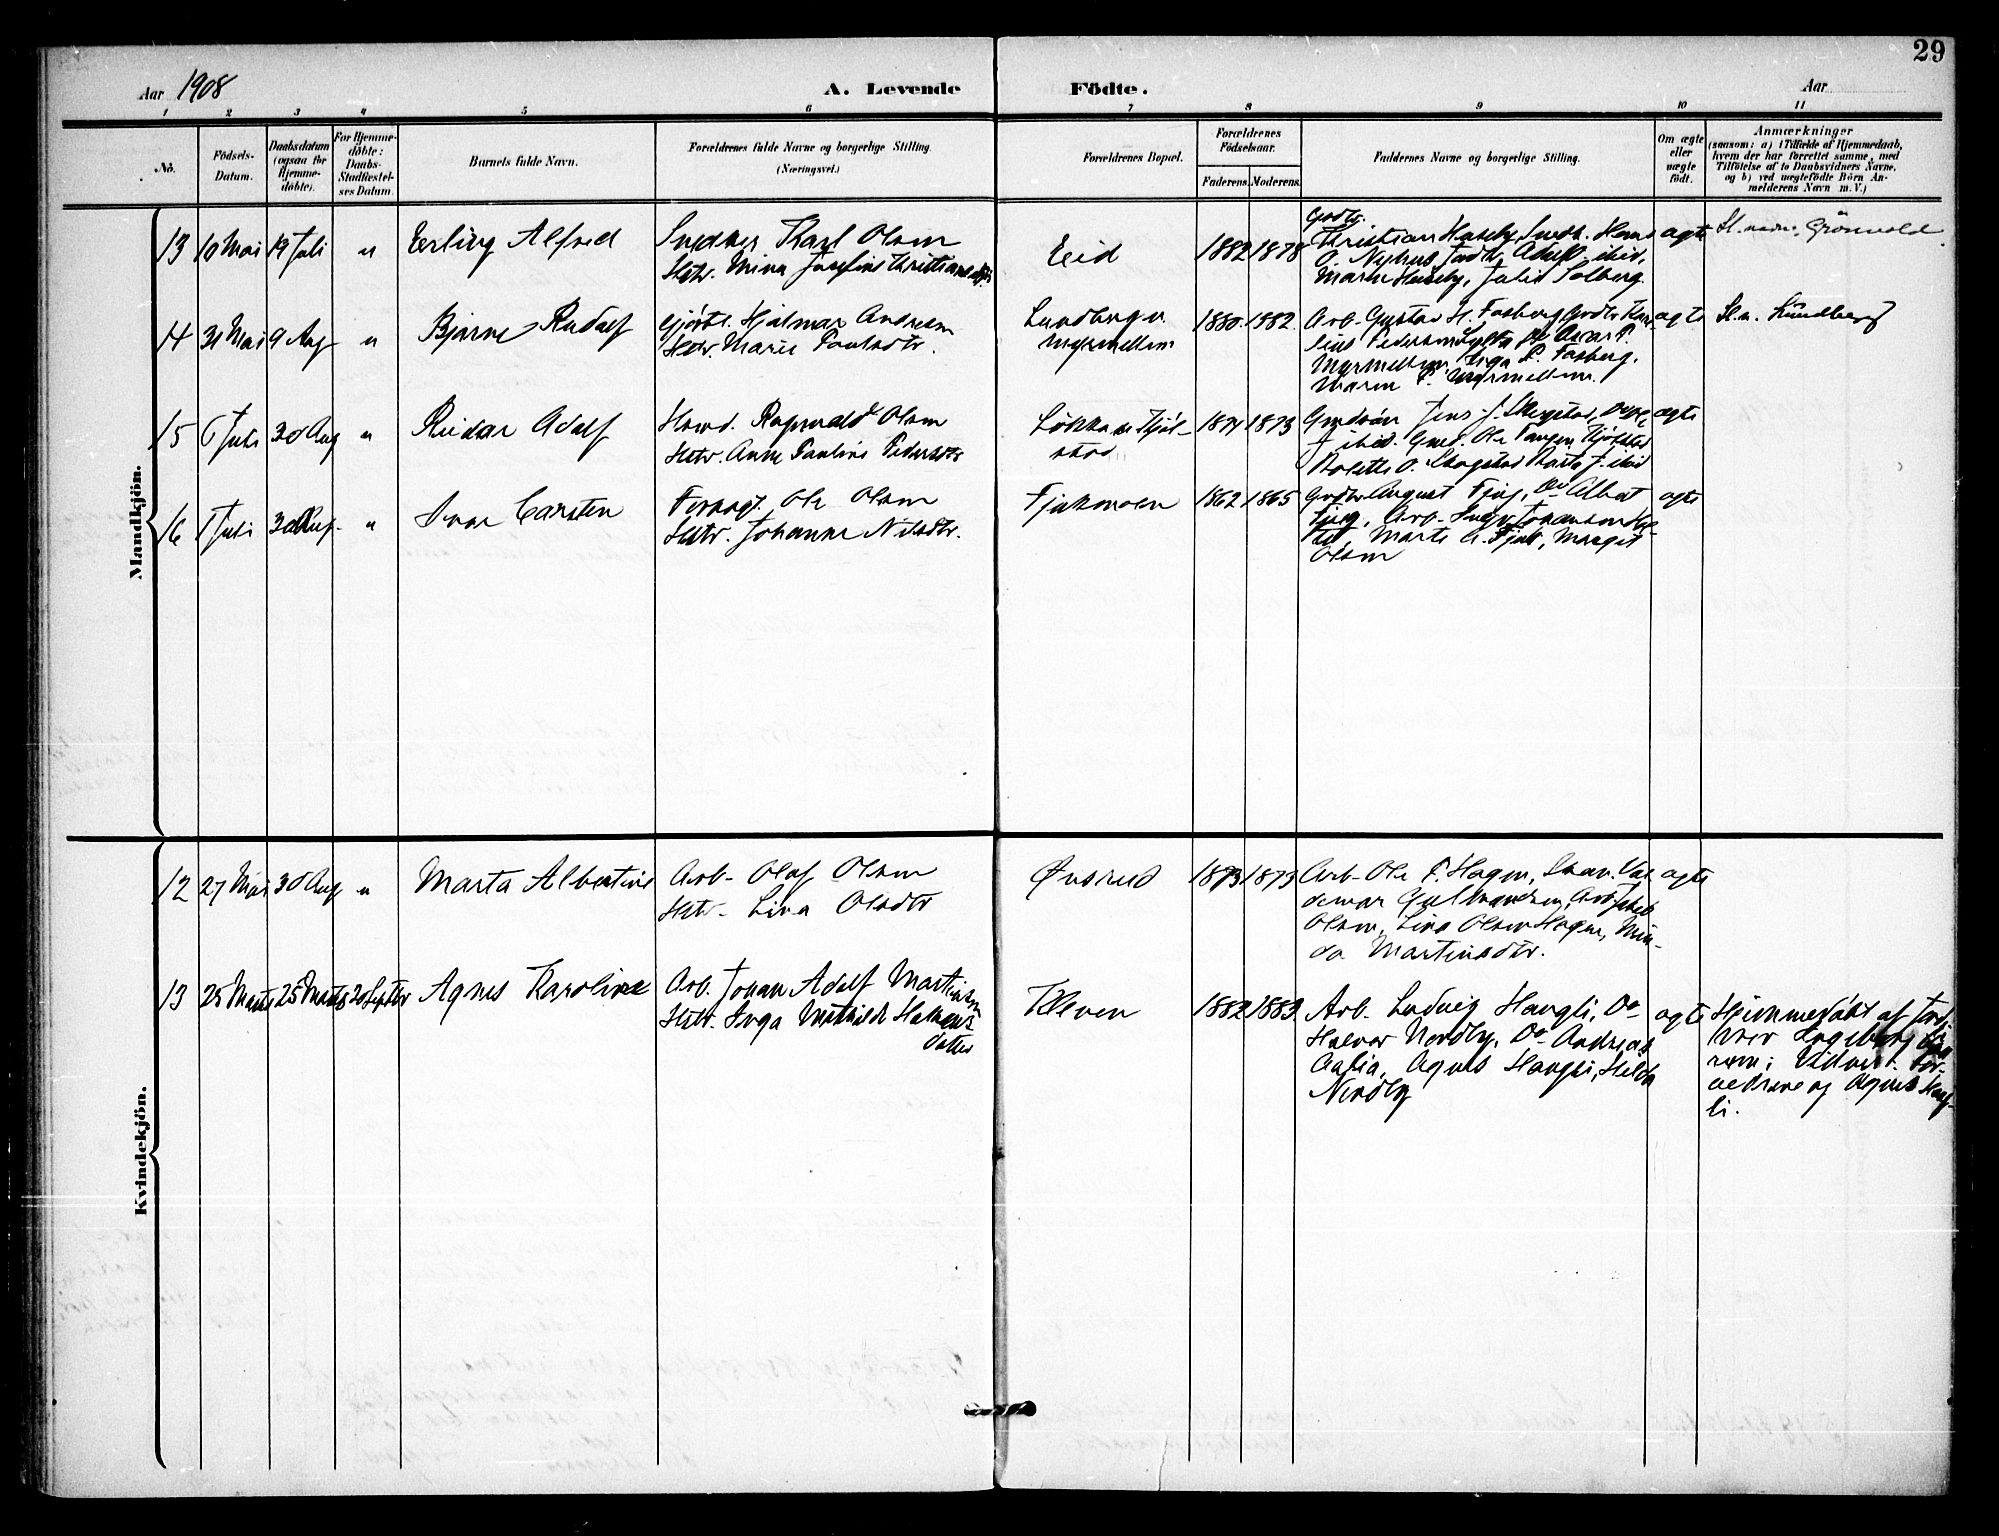 29
Aar 1908
A. Levende
Födte.
Aar
1 2 3 4 5 6 7 8 9 10 11
No.
Födsels-
Datum.
Daabsdatum
(ogsaa for
Hjemme-
döbte).
For Hjemme-
döbte:
Daabs-
Stadfæstel-
ses Datum.
Barnets fulde Navn.
Forældrenes fulde Navne og borgerlige Stilling.
(Næringsvei.)
Forældrenes Bopæl.
Forældrenes
Födselsaar.
Faderens. Moderens.
Faddernes Navne og borgerlige Stilling.
Om ægte
eller
uægte
födt.
Anmærkninger
(saasom: a) i Tilfælde af Hjemmedaab,
hvem der har forrettet samme, med
Tilföielse af to Daabsvidners Navne,
og b) ved uægtefödte Börn An-
melderens Navn m. V.)
Mandkjön.
13 10 Mai 19 Juli " Erling Alfred
Snedker Karl Olsen
Hstr. Mina Josefine Kristiansdtr.
Eid
1882 1878
Godtr.
Kristian Huseby, Snedk. Hans
O. Nyhus, Adolf ibid,
Maren Huseby, Julie Solberg.
ægte
Sl. navn. Grönvold.
14 31 Mai 9 Aug " Bjarne Rudolf
Gjörtl. Hjalmar Andresen
Hstr. Marie Paulsdtr.
Lundberg u.
Myrmellem
1880. 1882.
Arb. Gustav H. Fosberg, Godtr.
Pedersen Oscar P.
Myrmellem, Inga P. Fosberg,
Maren P. Myrmellem.
ægte
Sl. n. Lundberg
15 6 Juli 30 Aug " Reidar Adolf
Ragnvald Olsen
Hstr. Anne Pauline Pedersdtr
Lökka u. Kjöl-
stad
1871 1873
Jens J. Skogstad,
J. ibid. Gmd. Ole Tangen, Kjölstad
Bolette O. Skogstad Marte J. ibid
ægte
16 1 Juli 30 Aug. " Ivar Carsten
Ole Olsen
Hstr. Johanne Nilsdtr.
Fjukmoen
1862 1865
Godtr. August Fjug, Do Albert
Fjug, Arb. Johansen
Marte A. Fjuk, Margit
Olsen
ægte
Kvindekjön.
12 27 Mai 30 Aug " Marta Albertine
Arb. Olaf Olsen
Hstr. Lina Olsdtr
Önsrud
1873 1873
Arb. Ole P. Hagen, Val
demar Gulbrandsen, Arb. Jakob
Olsen, Lina Olsen Hagen, Min-
da Martinsdtr.
ægte
13 25 Marts 25 Marts 20 Septbr Agnes Karoline
Arb. Johan Adolf Martinsen
Hstr. Inga Mathilde Halvors
datter
Kleven
1882 1883.
Arb. Ludvig Haugli, Do
Halvor Nordby, Do Andreas
Aalia, Agnes Haugli, Hilda
Nordby
ægte
Hjemmedöbt af Jord-
mor Ingeborg
rem; Vidner: For-
ældrene og Agnes Haug-
li.